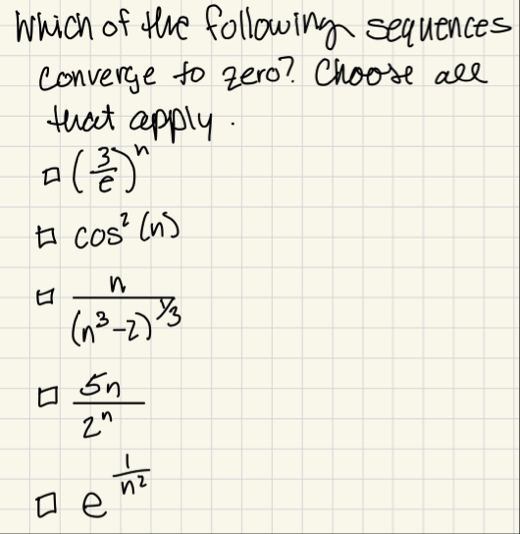 Which of the following sequences
converge to zero? Choose all
that apply.
□ (3/e)^n
□ cos² (n)
□ n/(n³-2)^1/3
□ 5n/2^n
□ e^(1/n²)